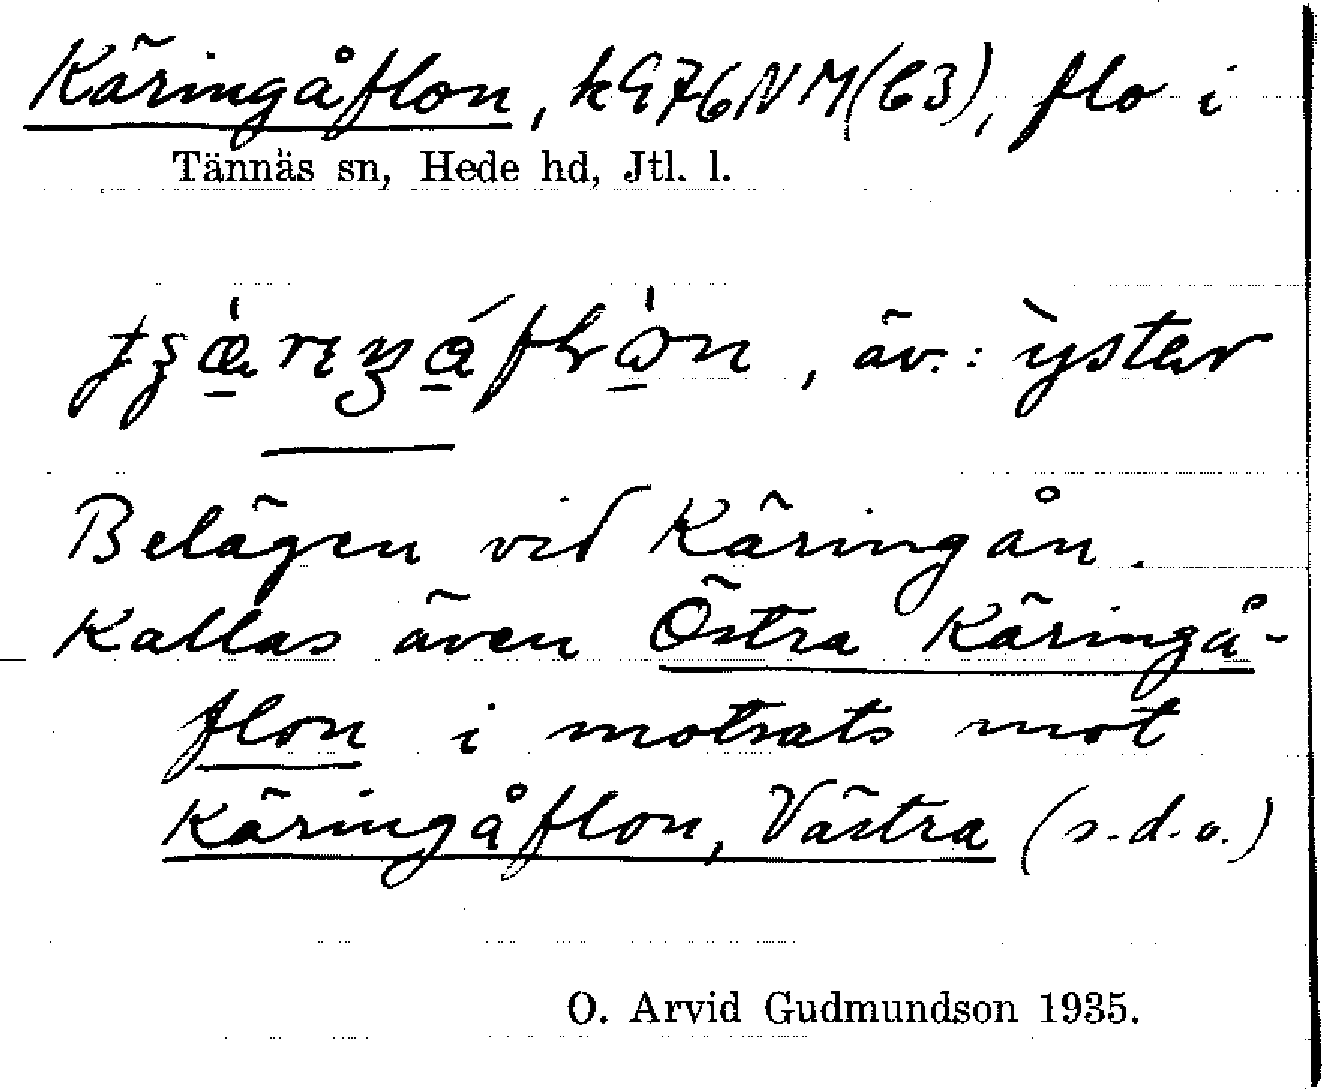 Käringåflon, k976NM(C3), flo i
Tännäs sn, Hede hd, Jtl. l.
, äv.: ỳster
Belägen vid Käringån.
Kallas även Östra Käringå-
flon i motsats mot
Käringåflon, Västra (s.d.o.)
O. Arvid Gudmundson 1935.